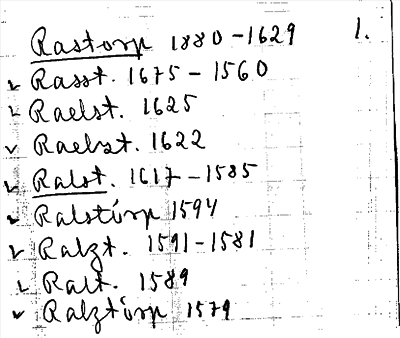 Rastorp 1880-1629 1.
✓ Rasst. 1675-1560
✓ Raelst. 1625
✓ Raelzt. 1622
✓ Ralst. 1617-1585
✓ Ralstúrp 1594
✓ Ralzt. 1591-1581
✓ Ralt. 1589
✓ Ralztúrp 1579